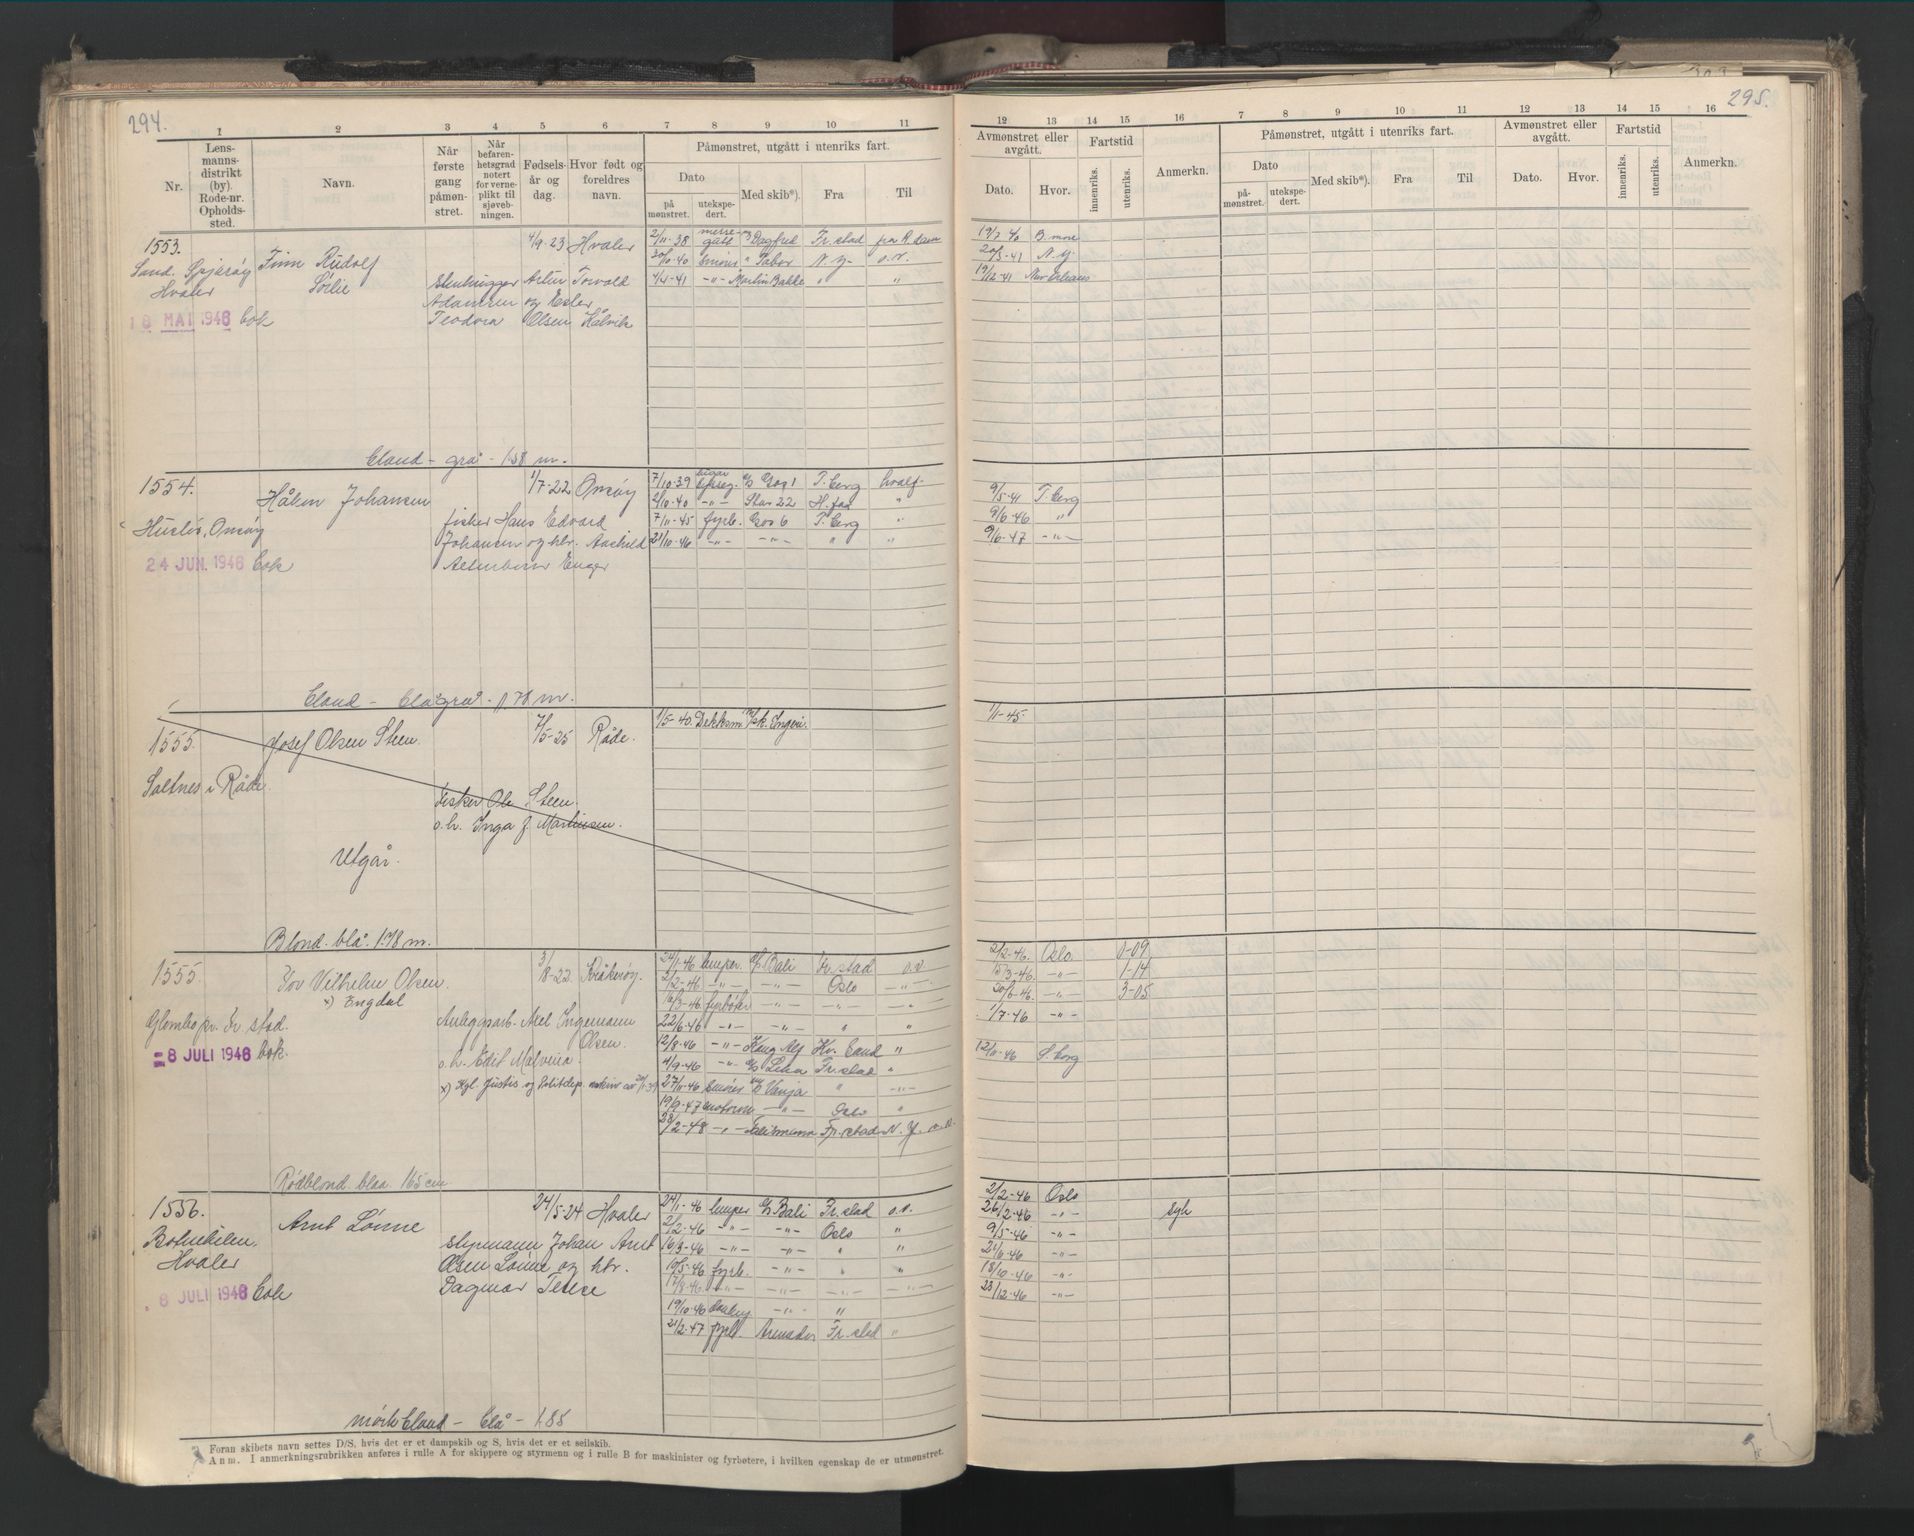 294.
1 2 3 4 5 6 7 8 9 10 11
Nr.
Lens-
manns-
distrikt
(by).
Rode-nr.
Opholds-
sted.
Navn.
Når
første
gang
påmøn-
stret.
Når
befaren-
hetsgrad
notert
for verne-
plikt til
sjøveb-
ningen.
Fødsels-
år og
dag.
Hvor født og
foreldres
navn.
Påmønstret, utgått i utenriks fart.
Dato
på
mønstret.
utekspe-
dert.
Med skib*).
Fra
Til
1553.
4/9-23 Hvaler
Sand. Spjærøy
Hvaler
Finn Rudolf
Sørlie
Stenhugger Artur Torvald
Adamsen og Ester
Teodora Olsen Hålvik
18 MAI 1946 bok
2/11-38 messegutt Dagfred Fr.stad
30/10-40 Smøris " Tabor N.Y. o.v.
4/4-41 -"- Martin Bakke " "
bland - grå - 1.58 m.
1554.
Håken Johansen
1/7-22 Onsøy
Huslø, Onsøy
24 JUN. 1946 bok
fisker Hans Edvard
Johansen og htr. Aashild
Enger
7/10-39 Gos 1 T.berg hvalf.
2/10-40 -"- Star 22 "
7/11-45 fyrb. Gos 6 T.berg "
21/10-46 -"- -"- " "
bland - blågrå - 1.78 m.
1555.
Josef Olsen Steen.
7/5-25 Råde.
Saltnes i Råde.
fisker Ole Steen.
o.h. Inga J. Martinsen.
Utgår.
1/5-40. Dekksm. M/sk. Engvi.
Blond. blå. 1.78 m.
1555.
Tor Vilhelm Olsen.
x) Engdal
3/8-22. Kråkerøy.
Glombo pr. Fr.stad.
= 8 JULI 1946 bok.
Anleggsarb. Axel Ingemann
Olsen.
o.h. Edit Malvina.
x) Kgl. Justis og Politidep.
24/1-46 lemper. Bali Fr.stad o.v.
2/2-46 -"- -"- Oslo -"-
16/3-46 fyrbøter -"- -"- "
22/6-46 -"- -"- " "
12/8-46 -"- Kong Alf "
4/9-46 -"- Fr.stad "
27/11-46 Smøris Vanja " -"-
19/9-47 motorm -"- Oslo "
28/2-48 -"- Talismann Fr.stad N.Y. o.v.
Rødblond. blaa. 165 cm
1556.
Arnt Lønne
24/5-24 Hvaler
Botnekilen
Hvaler
8 JULI 1946 bok
styrmann Johan Arnt
Olsen Lønne og htr.
Dagmar Terese
24/1-46 lemper Bali Fr.stad o.v.
2/2-46 " -"- Oslo "
16/3-46 -"- -"- " "
10/5-46 fyrb. -"- " "
17/8-46 -"- -"- -"- -"-
19/10-46 donkey -"- "
21/2-47 fyrb. Fr.stad "
mørkbland - blå - 1.85
*) Foran skibets navn settes D/S, hvis det er et dampskib og S, hvis det er et seilskib.
Anm. I anmerkningsrubrikken anføres i rulle A for skippere og styrmenn og i rulle B for maskinister og fyrbøtere, i hvilken egenskap de er utmønstret.
295.
12 13 14 15 16 7 8 9 10 11 12 13 14 15 16
Avmønstret eller
avgått.
Dato.
Hvor.
Fartstid
innenriks.
utenriks.
Anmerkn.
Påmønstret, utgått i utenriks fart.
Dato
på-
mønstret.
utekspe-
dert.
Med skib*).
Fra
Til
Avmønstret eller
avgått.
Dato.
Hvor.
Fartstid
innenriks.
utenriks.
Anmerkn.
19/7 40 B.more
20/3-41 N.Y.
19/12-41 New Orleans
9/5-41 T.berg
9/6-46 "
9/6-47 -"-
1/1-45.
2/2-46. Oslo. 0-09
15/3-46. -"- 1-14
20/6-46. -"- 3-05
1/7-46 -"-
12/11-46 S.borg
2/2-46 Oslo
26/2-46 -"- syk
9/5-46 -"-
21/6-46 -"-
18/10-46 -"-
23/12-46 -"-